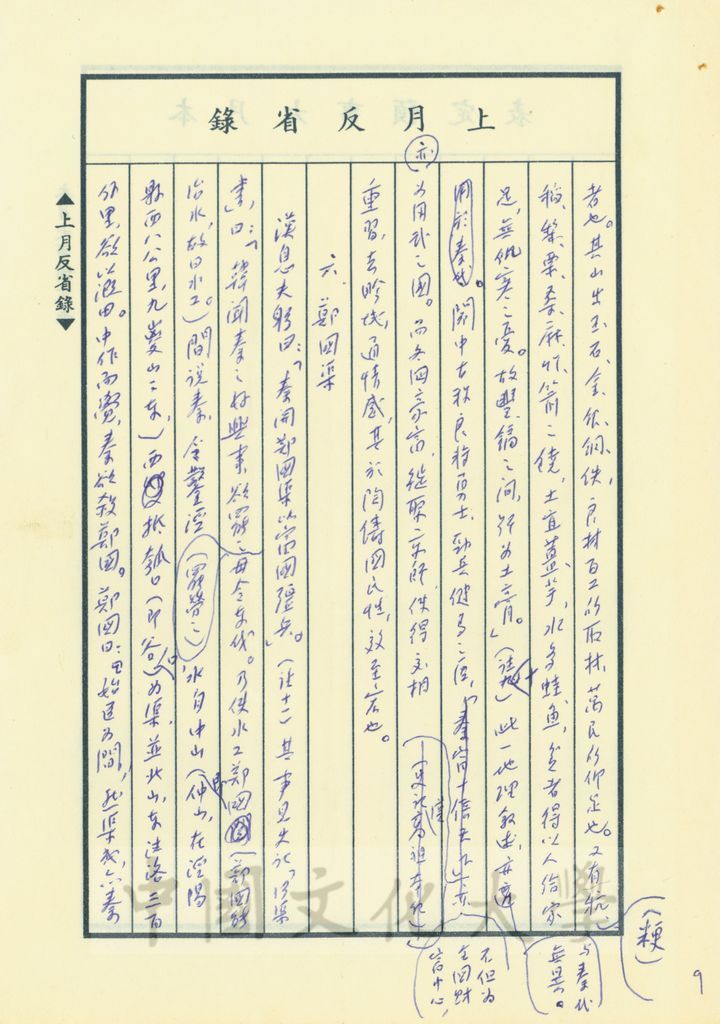 上月反省錄
者也。其山出玉石、金、銀、銅、鐵、良材百工的取材,萬民的仰足也。又有秔
(粳)
稻、梨、栗、桑、麻、竹、箭之饒,土宜薑芋,水多蛙魚,貧者得以人給家
足,無飢寒之憂。故豐鎬之間,號為土膏。」(註十)此一地理敘述,亦適
與秦代無異。
用於秦代。關中古秩良將勇士,勁兵健馬之區,「秦富十倍天下」
(史記高祖本紀)
不但為全國財富中心,
亦
為用武之國。而各國豪富,從聚之京師,使得交相
重習,去畛域,通情感,其於陶鑄國民性,效至宏也。
六、鄭國渠
漢息夫躬曰:「秦開鄭國渠以富國彊兵。」(註十一)其事見史記「河渠
書」,曰:「韓聞秦之好興事,欲罷之毋令東伐。乃使水工鄭國(鄭國能
(罷勞之)
治水,故曰水工。)間說秦,令鑿涇水自中山(即仲山,在涇陽
縣西八公里,九嵏山之東,)西抵瓠口(即谷口)為渠,並北山,東注洛三百
餘里,欲以溉田。中作而覺,秦欲殺鄭國。鄭國曰:『始臣為間,然渠成,亦秦
▲上月反省錄▼
9
中國文化大學